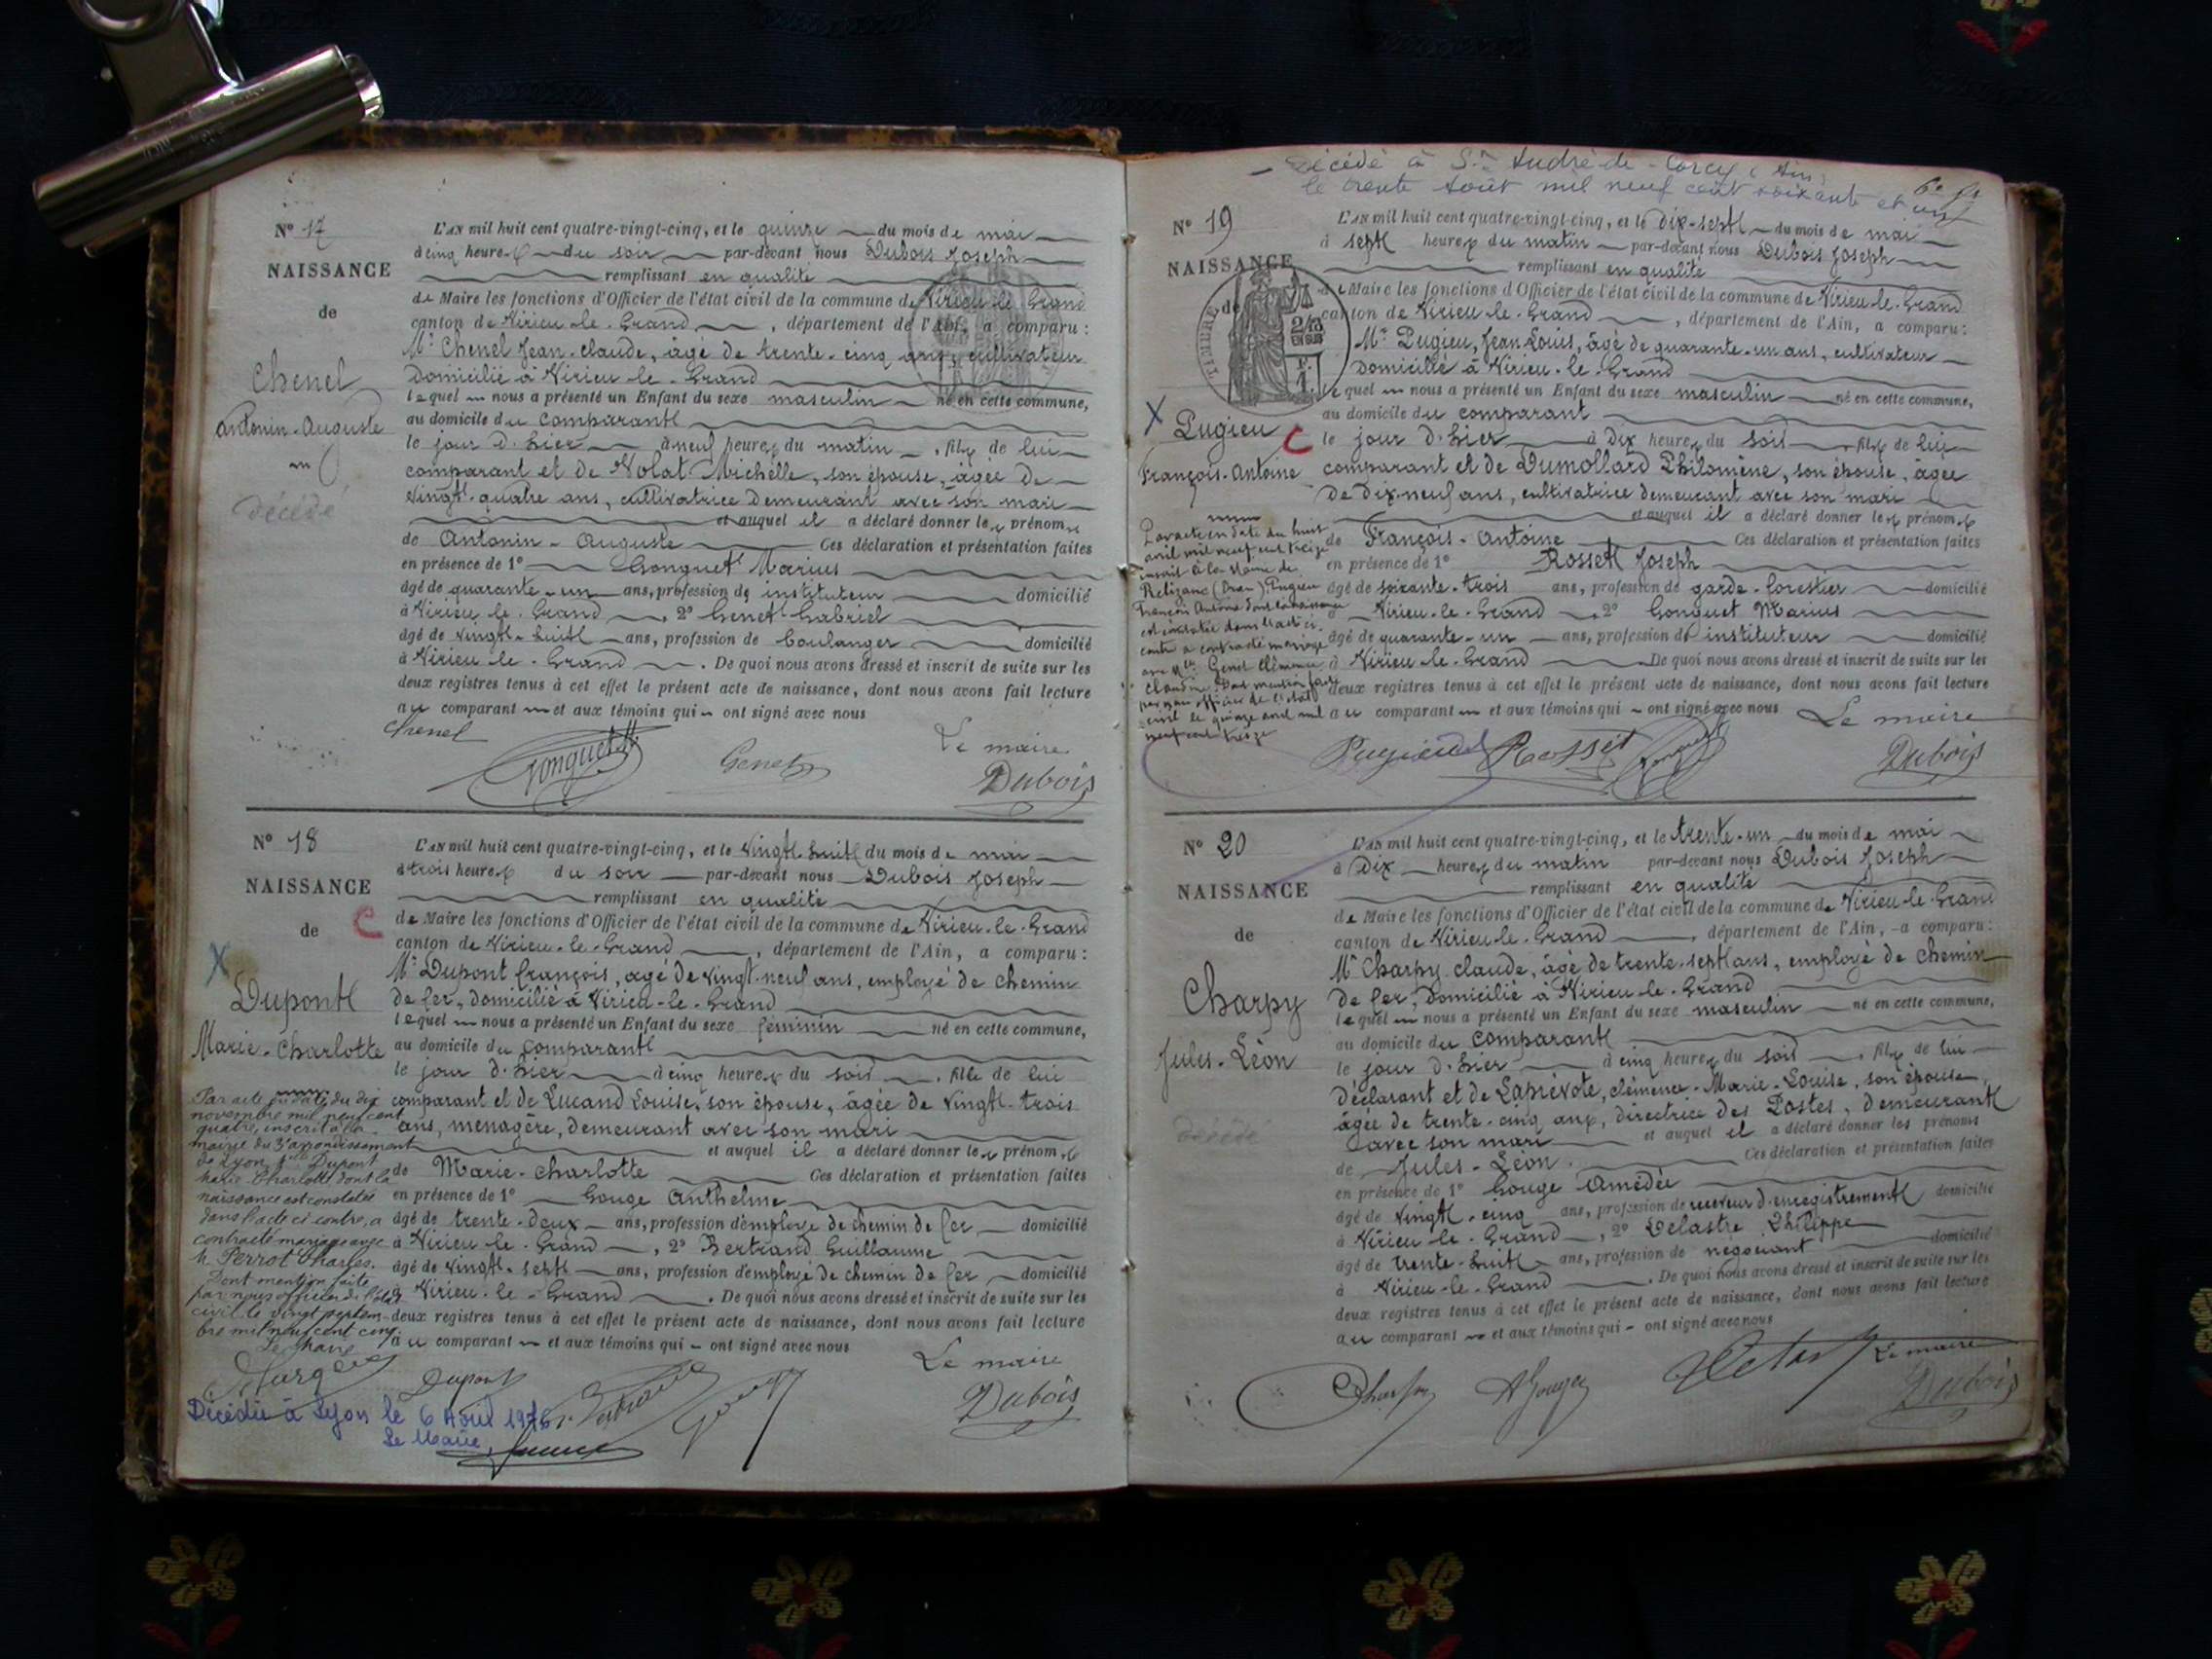 Nº 17
NAISSANCE
de
Chenel
Antonin-Auguste
Décédé
L'AN mil huit cent quatre-vingt-cinq, et le quinze du mois de mai
à cinq heures du soir par-devant nous Dubois Joseph
remplissant en qualité
de Maire les fonctions d'Officier de l'état civil de la commune de Virieu-le-Grand
canton de Virieu-le-Grand, département de l'Ain, a comparu :
Mr Chenel Jean-claude, âgé de trente-cinq ans, cultivateur
domicilié à Virieu-le-Grand
lequel nous a présenté un Enfant du sexe masculin né en cette commune,
au domicile du comparant
le jour d'hier à neuf heures du matin, fils de lui
comparant et de Volat Michelle, son épouse, âgée de
vingt-quatre ans, cultivatrice demeurant avec son mari
et auquel il a déclaré donner les prénoms
de Antonin-Auguste Ces déclaration et présentation faites
en présence de 1º Gonguet Marius
âgé de quarante-un ans, profession de instituteur domicilié
à Virieu-le-Grand, 2º Genet Gabriel
âgé de vingt-huit ans, profession de boulanger domicilié
à Virieu-le-Grand. De quoi nous avons dressé et inscrit de suite sur les
deux registres tenus à cet effet le présent acte de naissance, dont nous avons fait lecture
au comparant et aux témoins qui ont signé avec nous
Chenel Gonguet Genet Le maire
Dubois
Nº 18
NAISSANCE
de
C
X
Dupont
Marie-Charlotte
Par acte en date du dix
novembre mil neuf cent
quatre, inscrit à la
mairie du 3e arrondissement
de Lyon, Dupont
Marie Charlotte dont la
naissance est constatée
dans l'acte ci contre, a
contracté mariage avec
M. Perrot Charles.
Dont mention faite
par nous officier de l'état
civil le vingt septem-
bre mil neuf cent cinq.
Le Maire
L'AN mil huit cent quatre-vingt-cinq, et le vingt-huit du mois de mai
à trois heures du soir par-devant nous Dubois Joseph
remplissant en qualité
de Maire les fonctions d'Officier de l'état civil de la commune de Virieu-le-Grand
canton de Virieu-le-Grand, département de l'Ain, a comparu :
Mr Dupont François, âgé de vingt-neuf ans, employé de chemin
de fer, domicilié à Virieu-le-Grand
lequel nous a présenté un Enfant du sexe féminin né en cette commune,
au domicile du comparant
le jour d'hier à cinq heures du soir, fille de lui
comparant et de Lucand Louise, son épouse, âgée de vingt-trois
ans, menagère, demeurant avec son mari
et auquel il a déclaré donner les prénoms
de Marie-Charlotte Ces déclaration et présentation faites
en présence de 1º Gouge Anthelme
âgé de trente-deux ans, profession d'employé de chemin de fer domicilié
à Virieu-le-Grand, 2º Bertrand Guillaume
âgé de vingt-sept ans, profession d'employé de chemin de fer domicilié
à Virieu-le-Grand. De quoi nous avons dressé et inscrit de suite sur les
deux registres tenus à cet effet le présent acte de naissance, dont nous avons fait lecture
au comparant et aux témoins qui ont signé avec nous
Dupont Le maire
Dubois
Décédée à Lyon le 6 Avril 1976
Le Maire,
Décédé à St André-de-Corcy (Ain)
le trente Août mil neuf cent soixante et un
Nº 19
NAISSANCE
de
TIMBRE
2/10 EN SUS
1 F.
X
Pugieu C
François-Antoine
Par acte en date du huit
avril mil neuf cent treize
inscrit à la Mairie de
Relizane (Oran) Pugieu
François Antoine dont la naissance
est constatée dans l'acte ci-
contre a contracté mariage
avec Mlle Genet Clémence
Claudine. Dont mention faite
par nous officier de l'état
civil le quinze avril mil
neuf cent treize
L'AN mil huit cent quatre-vingt-cinq, et le dix-sept du mois de mai
à sept heures du matin par-devant nous Dubois Joseph
remplissant en qualité
de Maire les fonctions d'Officier de l'état civil de la commune de Virieu-le-Grand
canton de Virieu-le-Grand, département de l'Ain, a comparu :
Mr Pugieu, Jean-Louis, âgé de quarante-un ans, cultivateur
domicilié à Virieu-le-Grand
lequel nous a présenté un Enfant du sexe masculin né en cette commune,
au domicile du comparant
le jour d'hier à dix heures du soir, fils de lui
comparant et de Dumollard Philomène, son épouse, âgée
de dix-neuf ans, cultivatrice demeurant avec son mari
et auquel il a déclaré donner les prénoms
de François-Antoine Ces déclaration et présentation faites
en présence de 1º Rosset Joseph
âgé de soixante-trois ans, profession de garde-forestier domicilié
à Virieu-le-Grand, 2º Gonguet Marius
âgé de quarante-un ans, profession de instituteur domicilié
à Virieu-le-Grand De quoi nous avons dressé et inscrit de suite sur les
deux registres tenus à cet effet le présent acte de naissance, dont nous avons fait lecture
au comparant et aux témoins qui ont signé avec nous Le maire
Pugieu Rosset Dubois
Nº 20
NAISSANCE
de
Charpy
Jules-Léon
Décédé
L'AN mil huit cent quatre-vingt-cinq, et le trente-un du mois de mai
à dix heures du matin par-devant nous Dubois Joseph
remplissant en qualité
de Maire les fonctions d'Officier de l'état civil de la commune de Virieu-le-Grand
canton de Virieu-le-Grand, département de l'Ain, a comparu :
Mr Charpy claude, âgé de trente-sept ans, employé de chemin
de fer, domicilié à Virieu-le-Grand
lequel nous a présenté un Enfant du sexe masculin né en cette commune,
au domicile du comparant
le jour d'hier à cinq heures du soir, fils de lui
déclarant et de Laprévote, clémence-Marie-Louise, son épouse
âgée de trente-cinq ans, directrice des Postes, demeurant
avec son mari et auquel il a déclaré donner les prénoms
de Jules-Léon. Ces déclaration et présentation faites
en présence de 1º Gouge Amédée
âgé de vingt-cinq ans, profession de receveur d'enregistrement domicilié
à Virieu-le-Grand, 2º Delastre Philippe
âgé de trente-huit ans, profession de négociant domicilié
à Virieu-le-Grand. De quoi nous avons dressé et inscrit de suite sur les
deux registres tenus à cet effet le présent acte de naissance, dont nous avons fait lecture
au comparant et aux témoins qui ont signé avec nous
Charpy AGouge Le maire
Dubois